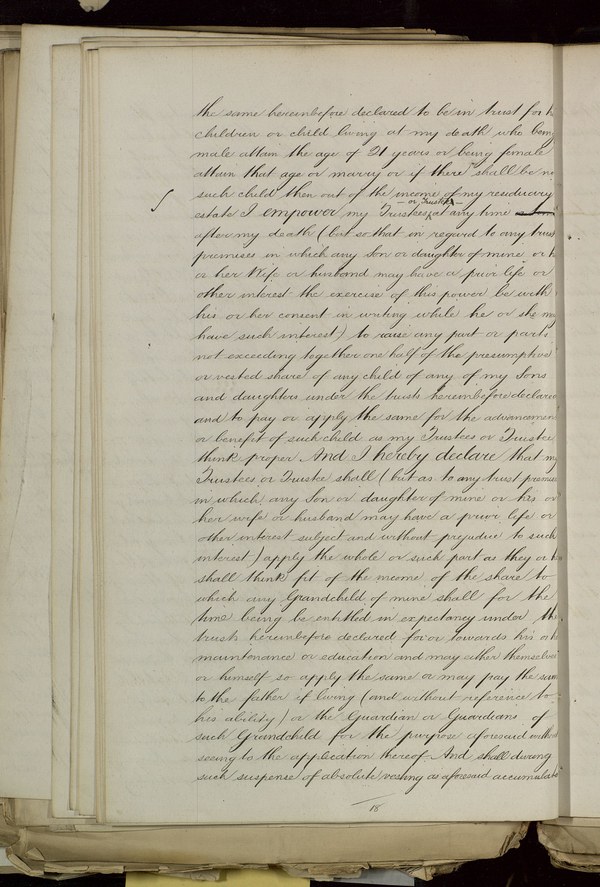 the same hereinbefore declared to be in trust for h
children or child living at my death who being
male attain the age of 21 years or being female
attain that age or marry or if there shall be no
such child then out of the income of my residuary
- or Trustee -
estate I empower my Trustees at any time
after my death (but so that in regard to any trust
premises in which any son or daughter of mine or h
or her Wife or husband may have a prior life or
other interest the exercise of this power be with
his or her consent in writing while he or she may
have such interest) to raise any part or parts
not exceeding together one half of the presumptive
or vested share of any child of any of my Sons
and daughters under the trusts hereinbefore declared
and to pay or apply the same for the advancement
or benefit of such child as my Trustees or Trustee
think proper And I hereby declare that my
Trustees or Trustee shall (but as to any trust premises
in which any Son or daughter of mine or his or
her wife or husband may have a prior life or
other interest subject and without prejudice to such
interest) apply the whole or such part as they or h
shall think fit of the income of the share to
which any Grandchild of mine shall for the
time being be entitled in expectancy under the
trusts hereinbefore declared for or towards his or h
maintenance or education and may either themselves
or himself so apply the same or may pay the same
to the father if living (and without reference to
his ability) or the Guardian or Guardians of
such Grandchild for the purpose aforesaid without
seeing to the application thereof And shall during
such suspense of absolute vesting as aforesaid accumulate
18